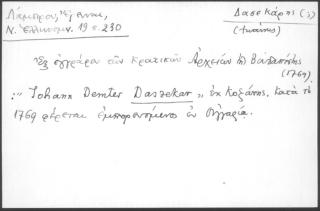 Λάμπρος, Σπ,
Ν. Ἑλληνομν. 19 σ. 230
Δασκάρης (;)
(Ἰωάννης)
Ἐξ ἐγγράφων τῶν κρατικῶν Ἀρχείων τῆς Βουδαπέστης
(1769)
: "Johann Demter Daszekar" ἐκ Κοζάνης, κατὰ τὸ
1769 φέρεται ἐμπορευόμενος ἐν Οὑγγαρίᾳ.